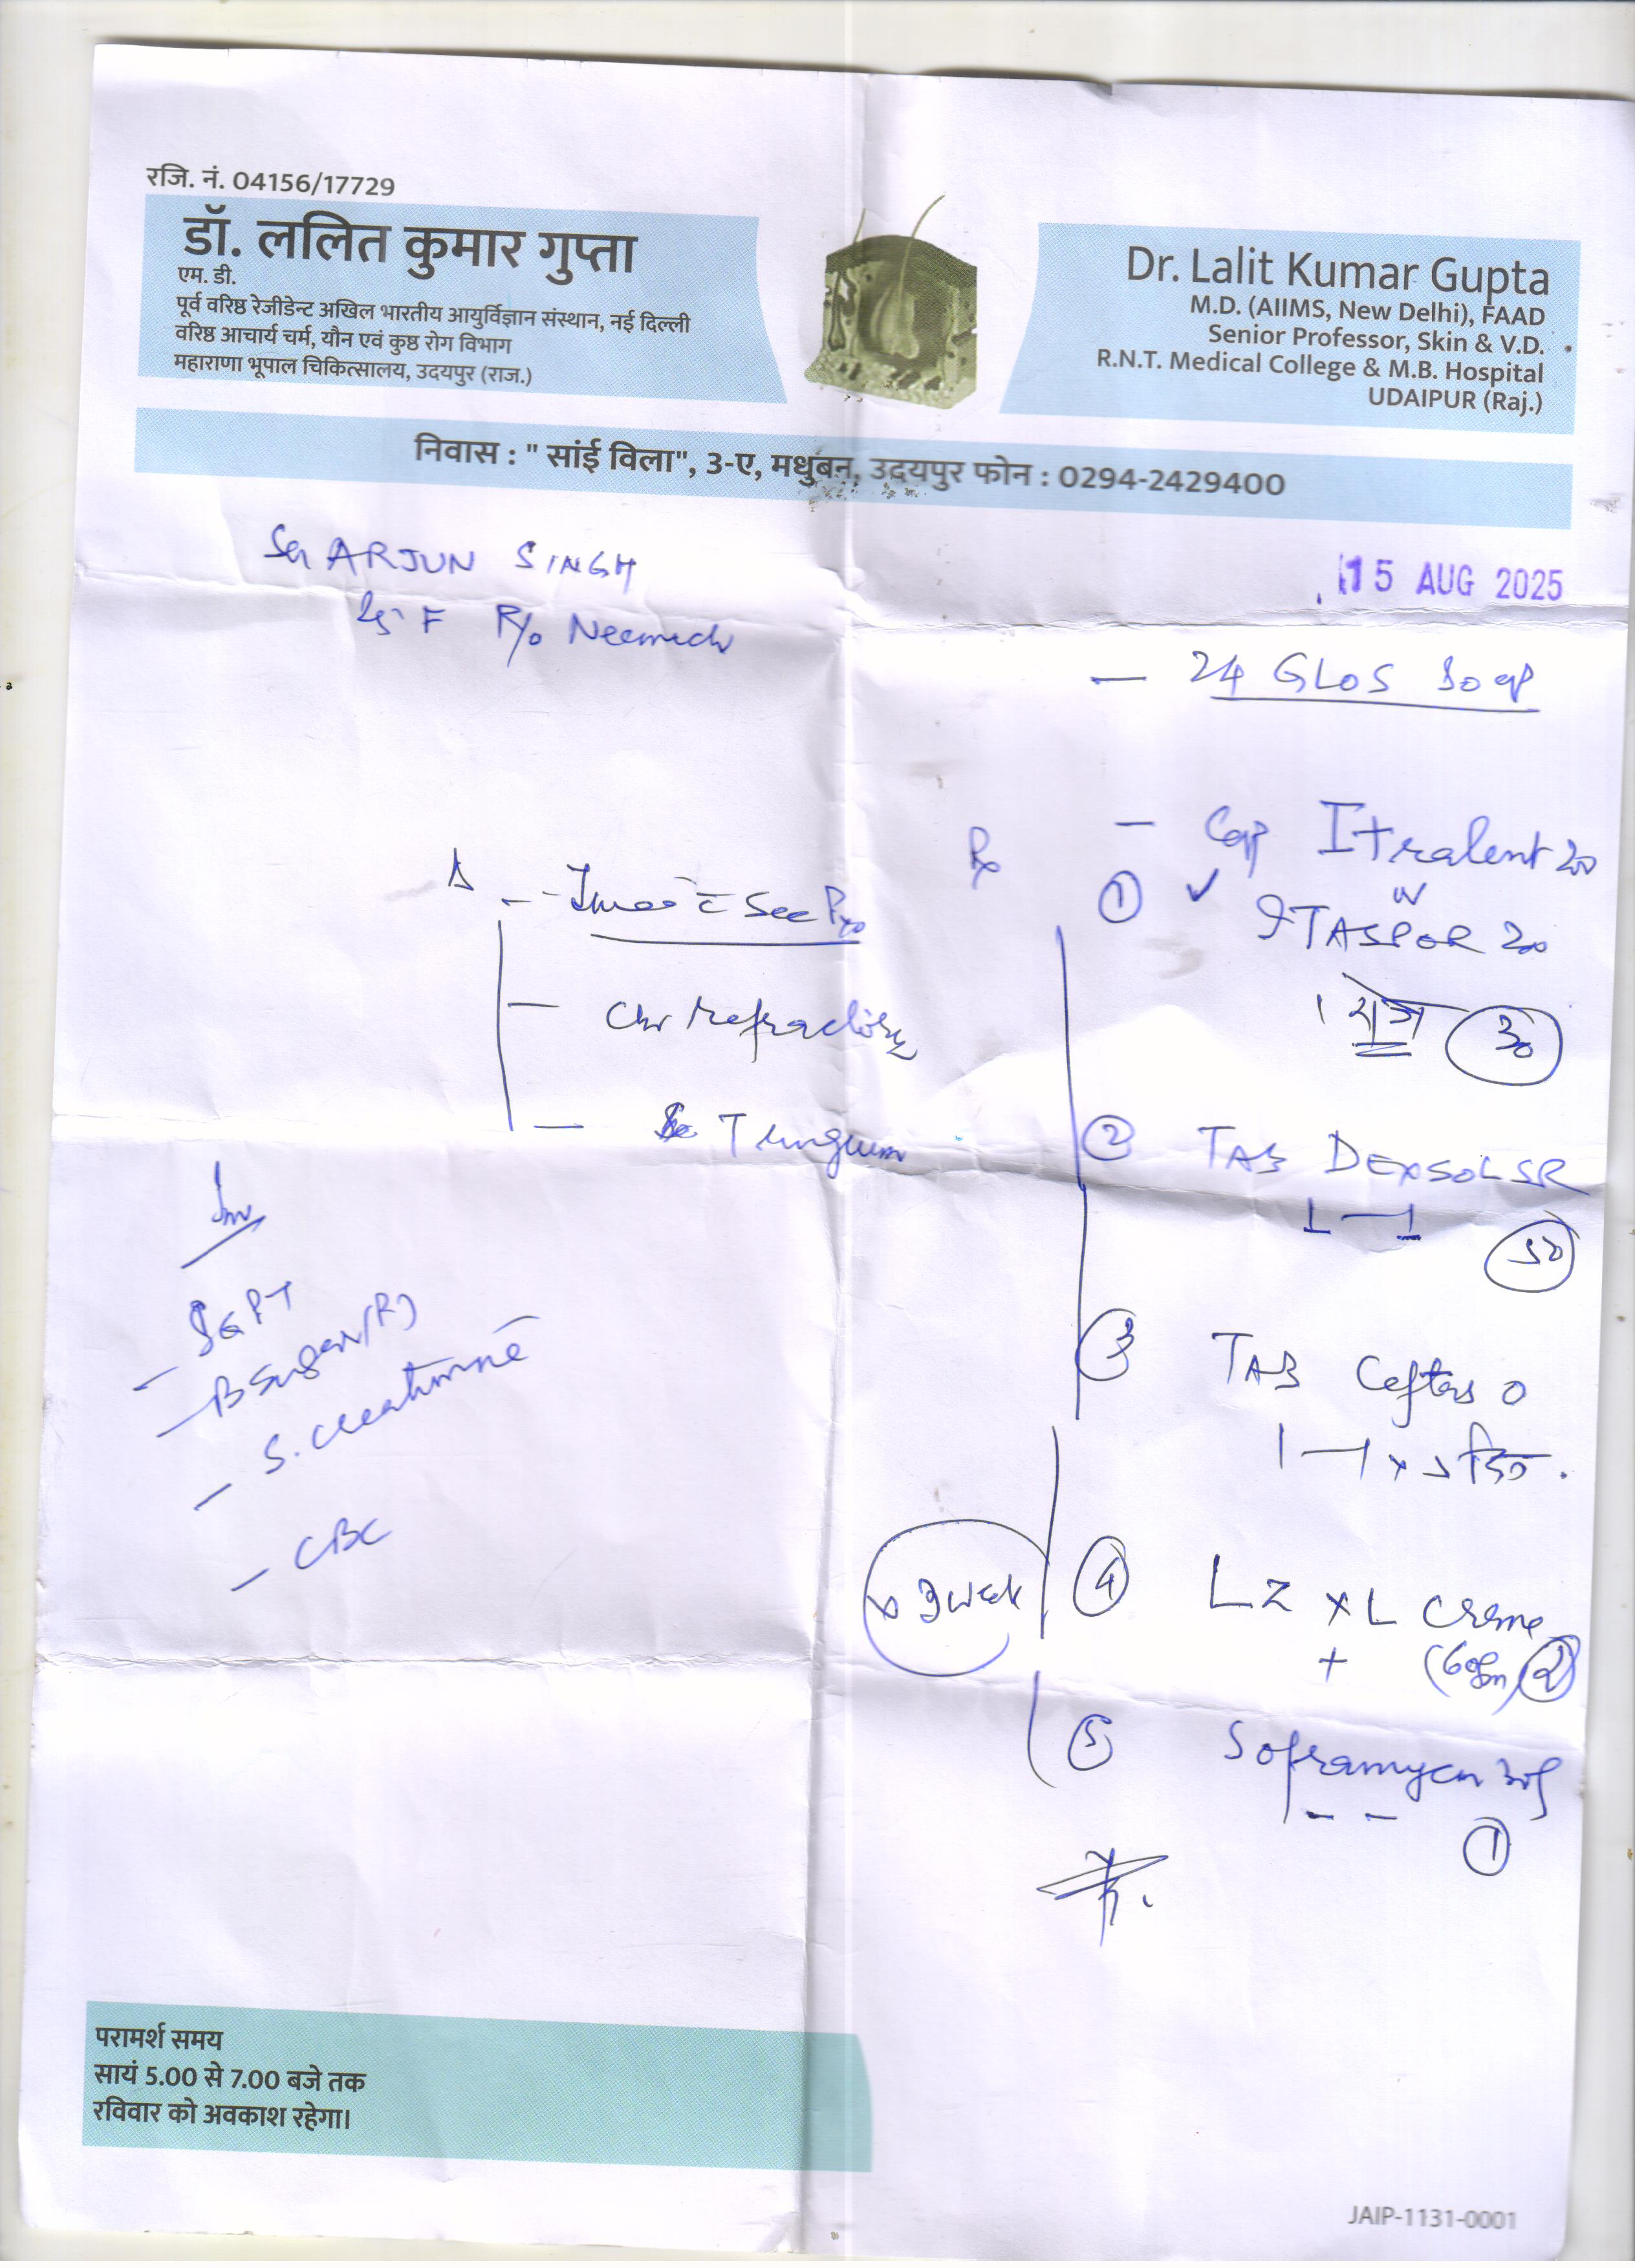 रजि. नं. 04156/17729
डॉ. ललित कुमार गुप्ता
एम. डी.
पूर्व वरिष्ठ रेजीडेन्ट अखिल भारतीय आयुर्विज्ञान संस्थान, नई दिल्ली
वरिष्ठ आचार्य चर्म, यौन एवं कुष्ठ रोग विभाग
महाराणा भूपाल चिकित्सालय, उदयपुर (राज.)
Dr. Lalit Kumar Gupta
M.D. (AIIMS, New Delhi), FAAD
Senior Professor, Skin & V.D.
R.N.T. Medical College & M.B. Hospital
UDAIPUR (Raj.)
निवास : " सांई विला", 3-ए, मधुबन, उदयपुर फोन : 0294-2429400
ARJUN SINGH
F R/o Neemuch
15 AUG 2025
— 24 GLOS Soap
Rx
— Cap Itralent 200
① ✓ ITASPOR 200
1 रोज 30
② TAB DEXSOL SR
1—1
③ TAB Ceftas O
1—1 x
④ LZ XL Creme
+ (60gm) 2
⑤ Soframycin
1
x 3 week
refractory
- SGPT
- B Sugar (R)
- S. creatinine
- CBC
परामर्श समय
सायं 5.00 से 7.00 बजे तक
रविवार को अवकाश रहेगा।
JAIP-1131-0001